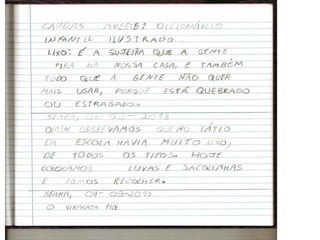 CALDAS AULETE: DICIONÁRIO
INFANTIL ILUSTRADO.
LIXO: É A SUJEIRA QUE A GENTE
TIRA DA NOSSA CASA, E TAMBÉM
TUDO QUE A GENTE NÃO QUER
MAIS USAR, PORQUE ESTÁ QUEBRADO
OU ESTRAGADO.
SEARA, 2013
OBSERVAMOS QUE NO PÁTIO
DA ESCOLA HAVIA MUITO LIXO,
DE TODOS OS TIPOS. HOJE
COLOCAMOS LUVAS E SACOLINHAS
E FOMOS RECOLHER.
SEARA, 04-09-2013
O